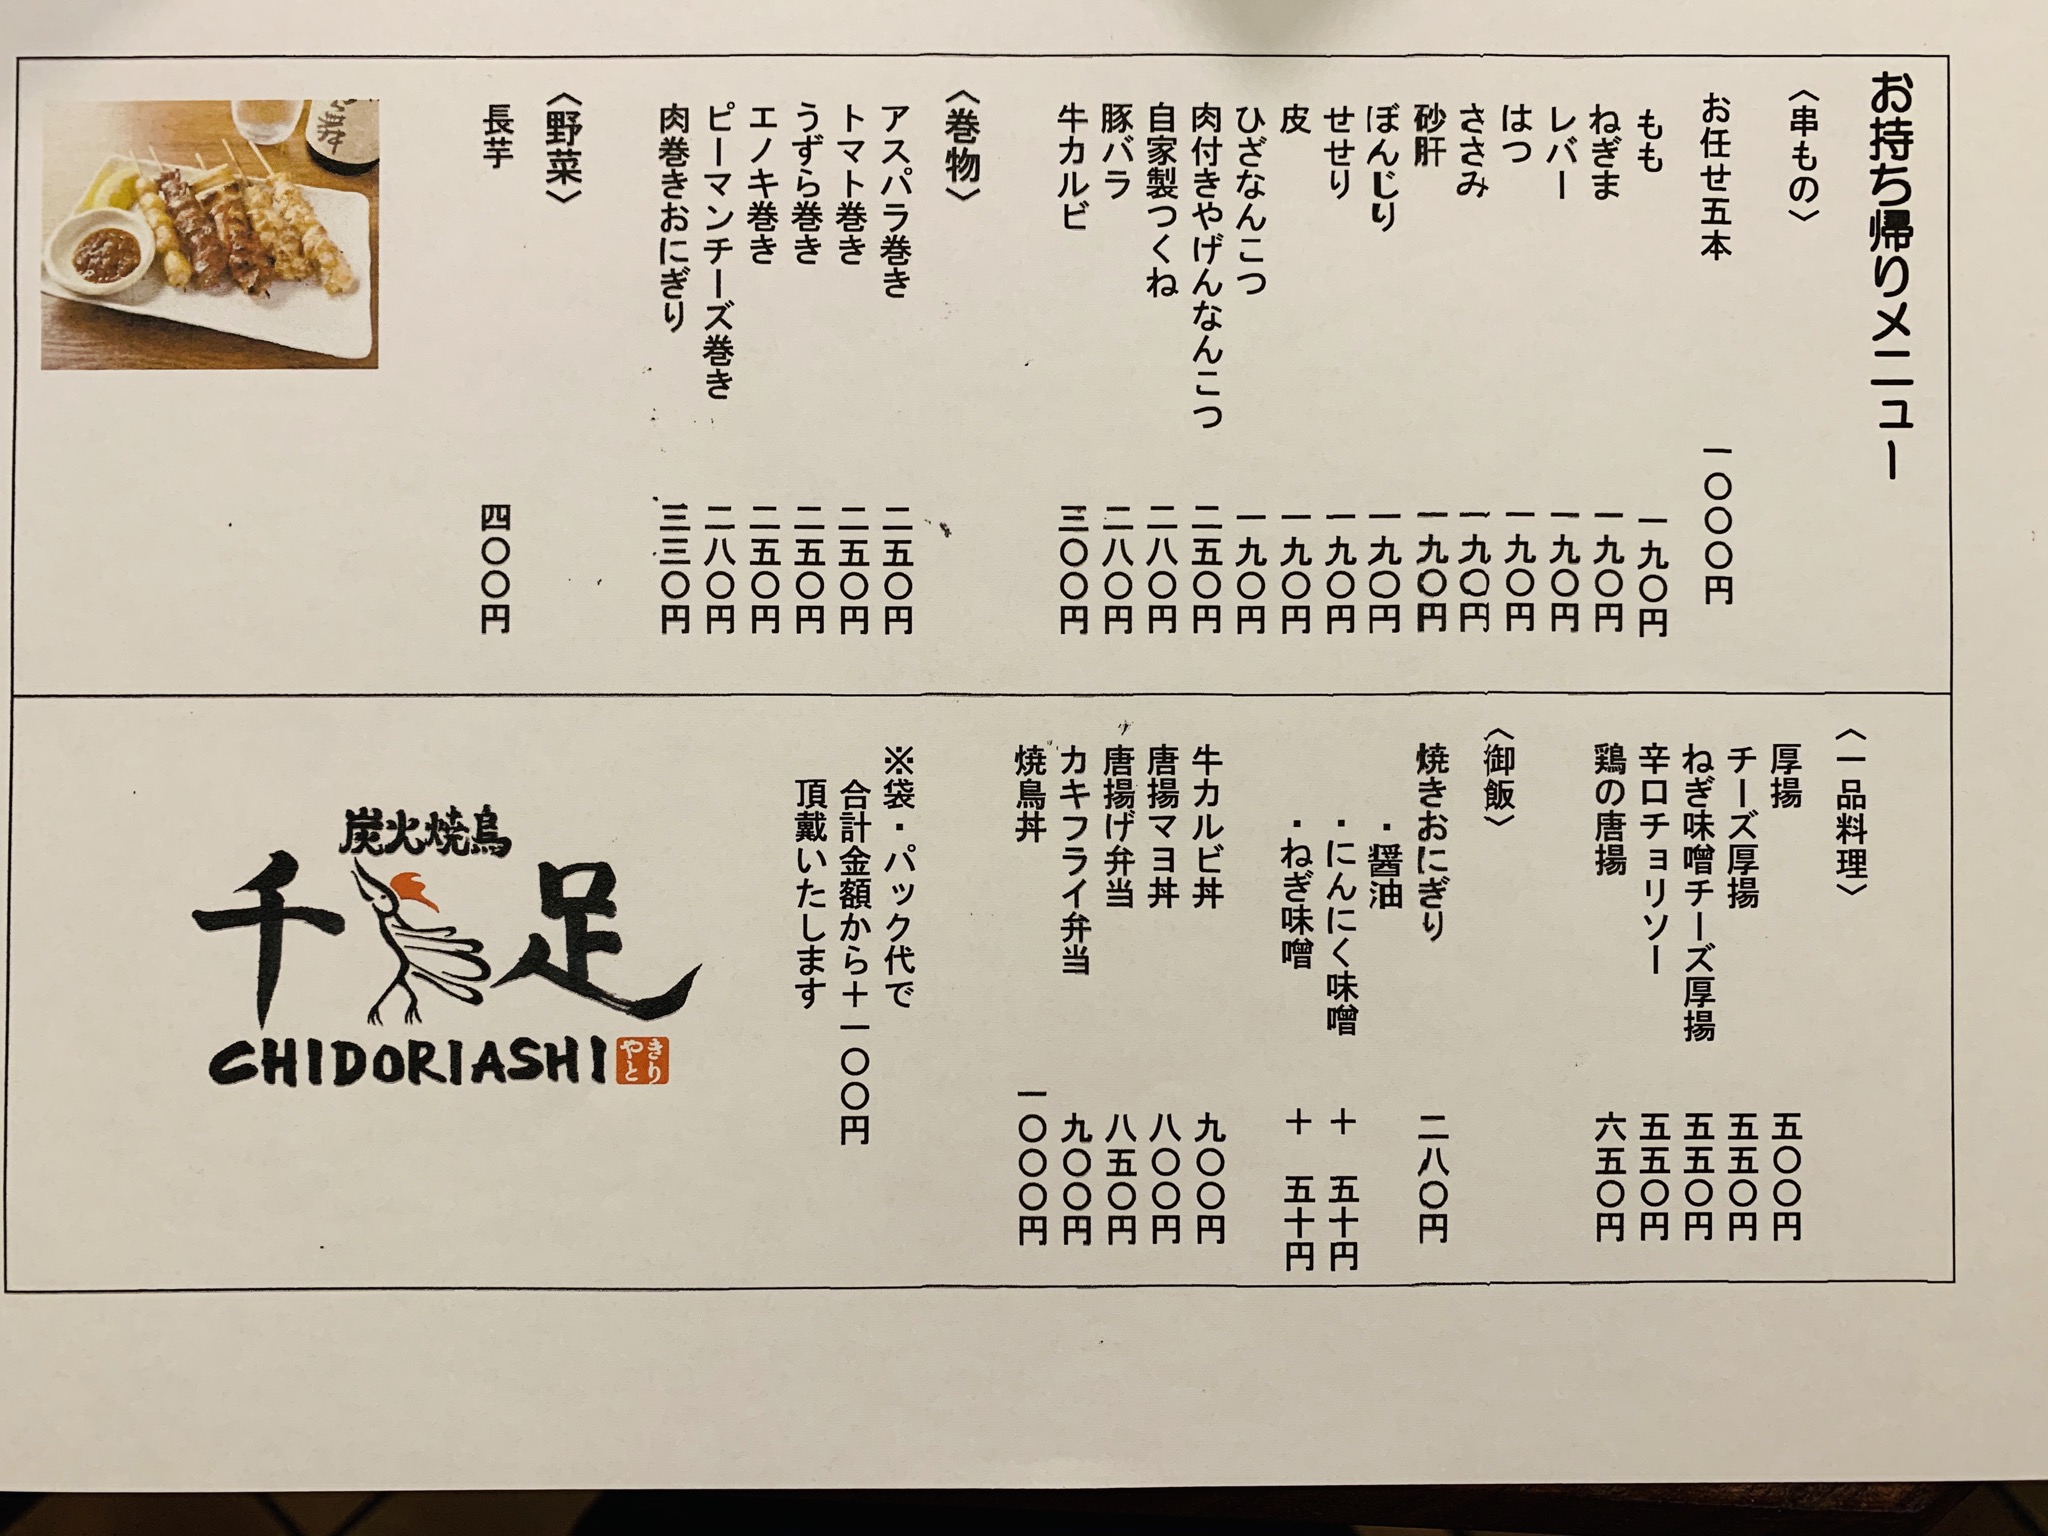 お持ち帰りメニュー
〈串もの〉
お任せ五本 一〇〇〇円
もも 一九〇円
ねぎま 一九〇円
レバー 一九〇円
はつ 一九〇円
ささみ 一九〇円
砂肝 一九〇円
ぼんじり 一九〇円
せせり 一九〇円
皮 一九〇円
ひざなんこつ 一九〇円
肉付きやげんなんこつ 二五〇円
自家製つくね 二八〇円
豚バラ 二八〇円
牛カルビ 三〇〇円
〈巻物〉
アスパラ巻き 二五〇円
トマト巻き 二五〇円
うずら巻き 二五〇円
エノキ巻き 二五〇円
ピーマンチーズ巻き 二八〇円
肉巻きおにぎり 三三〇円
〈野菜〉
長芋 四〇〇円
〈一品料理〉
厚揚 五〇〇円
チーズ厚揚 五五〇円
ねぎ味噌チーズ厚揚 五五〇円
辛口チョリソー 五五〇円
鶏の唐揚 六五〇円
〈御飯〉
焼きおにぎり 二八〇円
・醤油
・にんにく味噌 ＋ 五十円
・ねぎ味噌 ＋ 五十円
牛カルビ丼 九〇〇円
唐揚マヨ丼 八〇〇円
唐揚げ弁当 八五〇円
カキフライ弁当 九〇〇円
焼鳥丼 一〇〇〇円
※袋・パック代で
合計金額から＋一〇〇円
頂戴いたします
炭火焼鳥
千足
CHIDORIASHI
やきとり